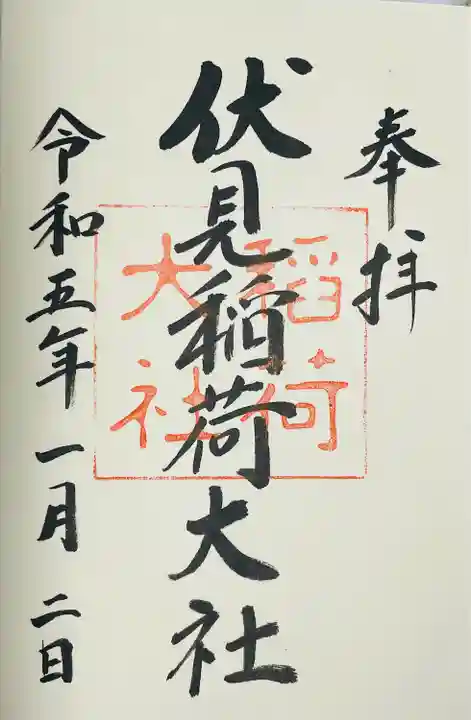 奉拝
伏見稲荷大社
稲荷
大社
令和五年一月二日